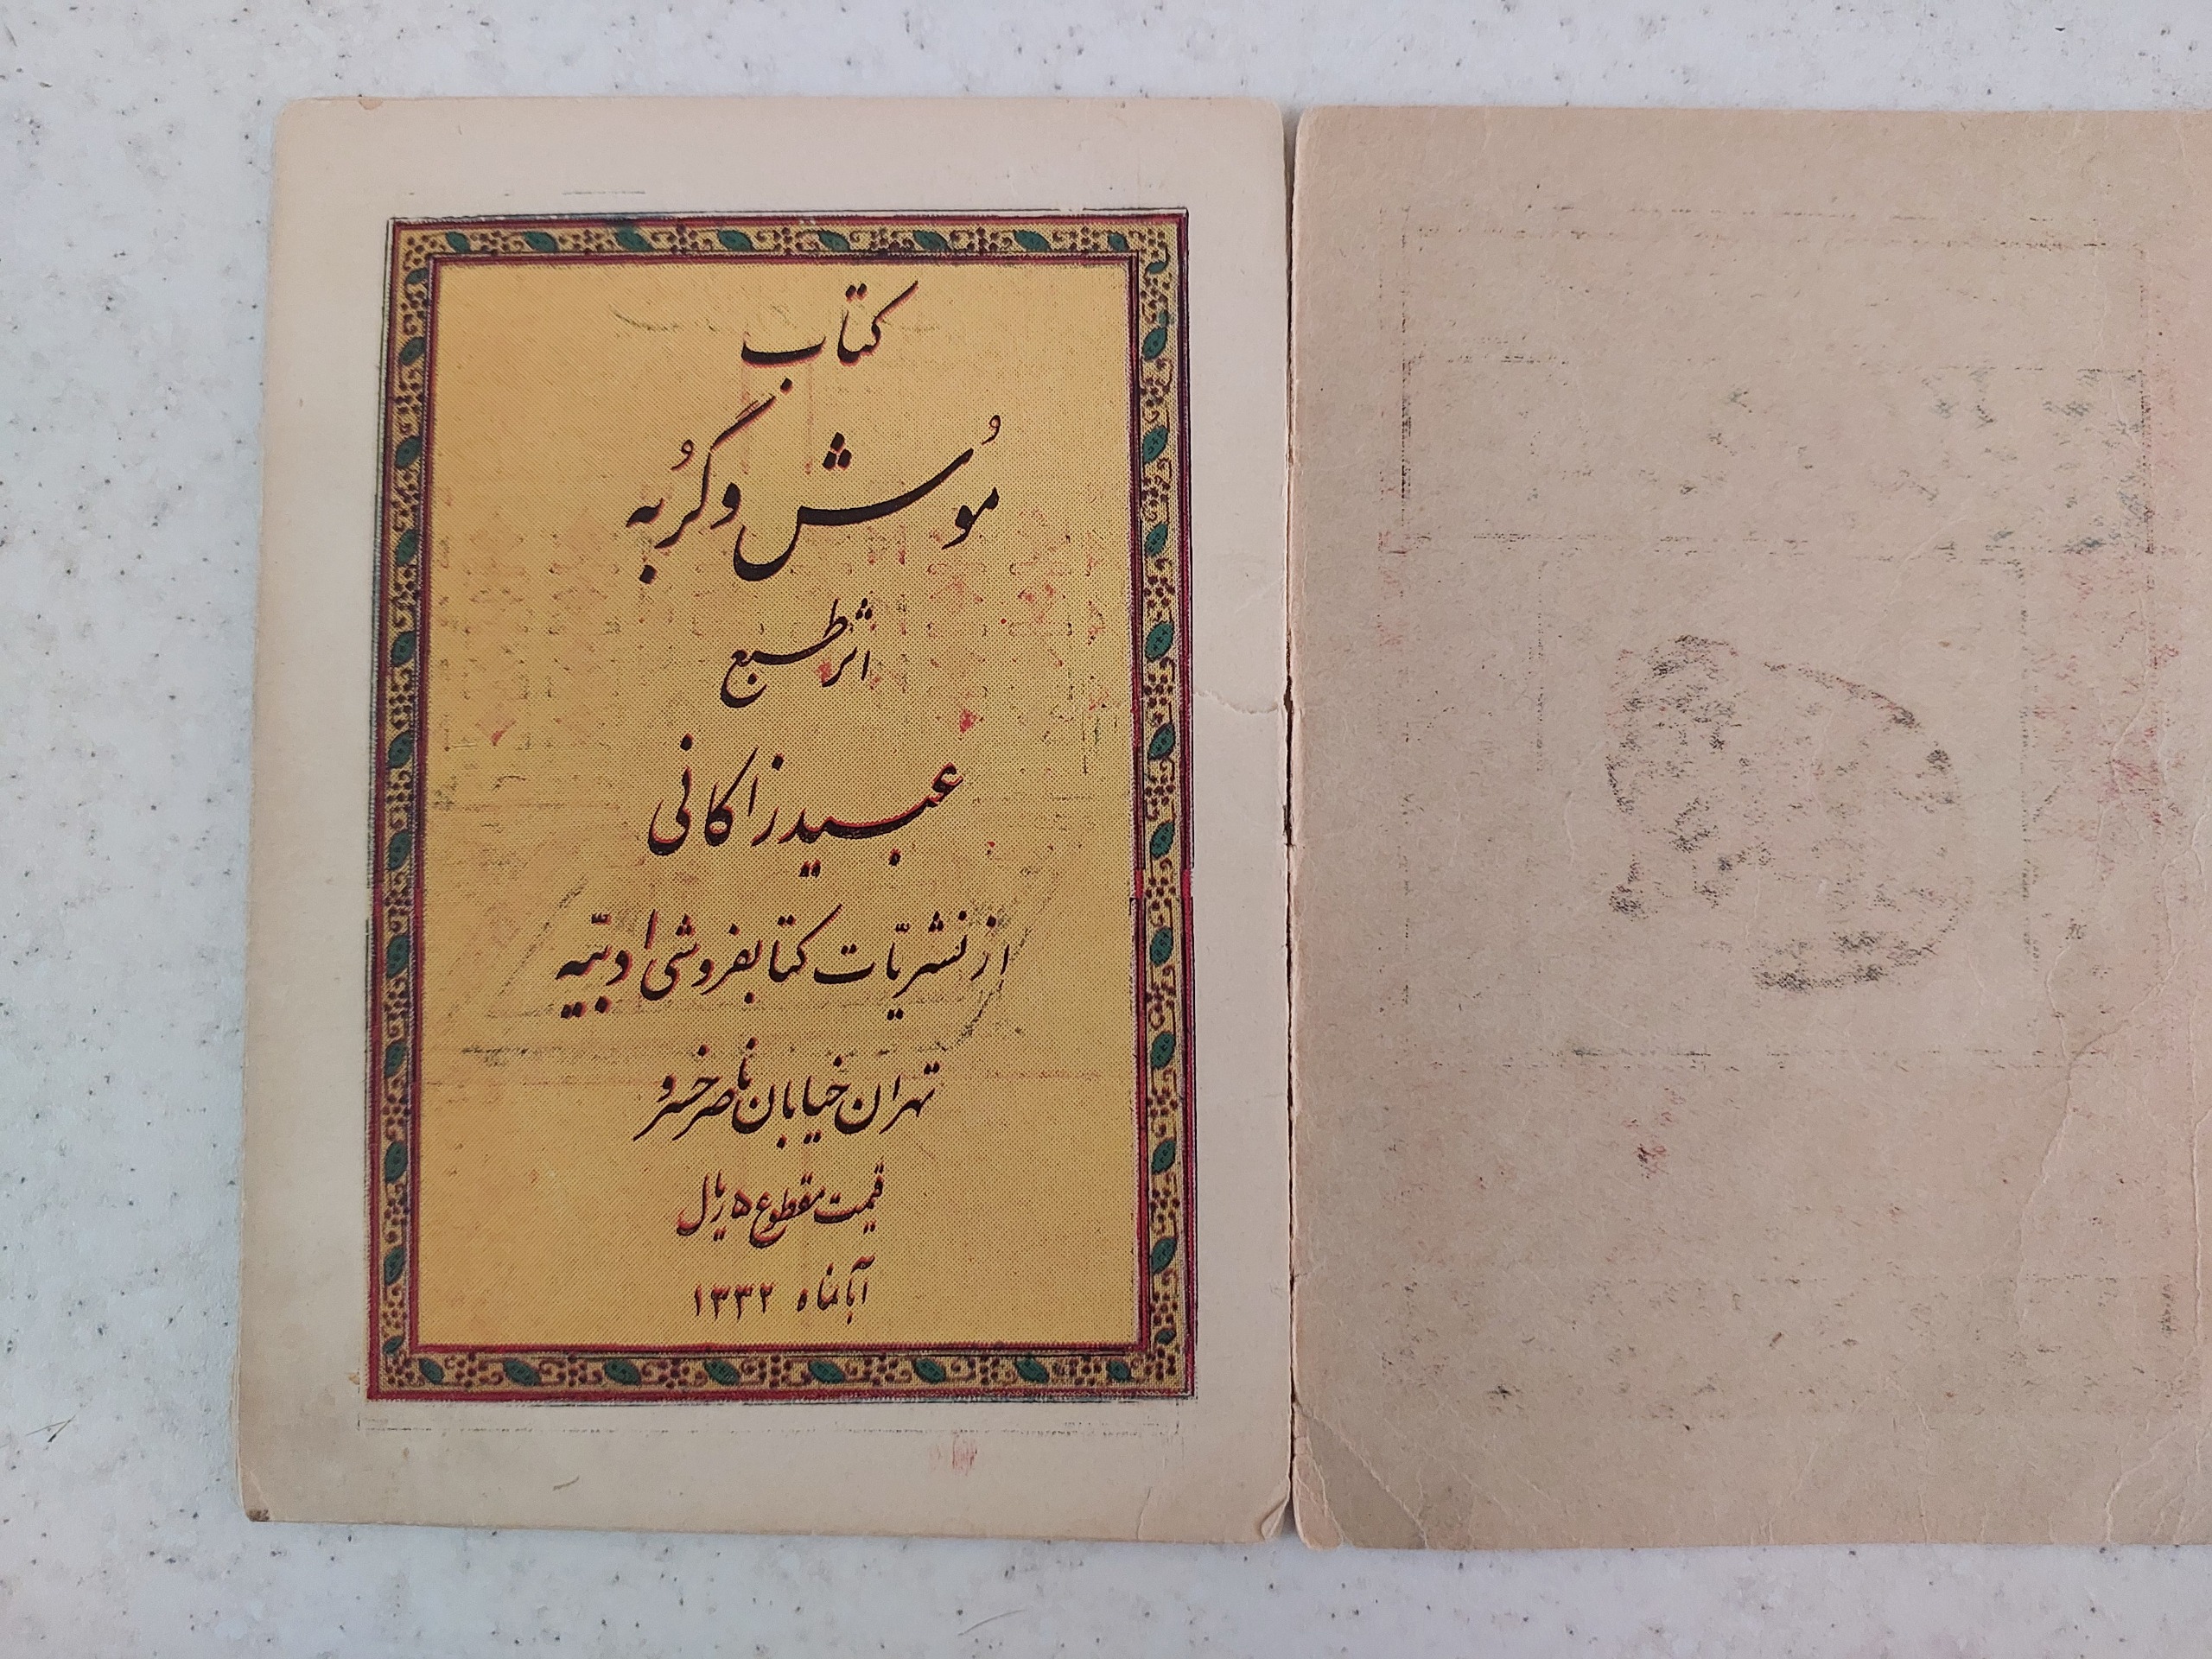 کتاب
مُوش و گُربه
اثر طبع
عبید زاکانی
از نشریّات کتابفروشی ادبیّه
تهران خیابان ناصر خسرو
قیمت مقطوع ۵ ریال
آبانماه ۱۳۳۲